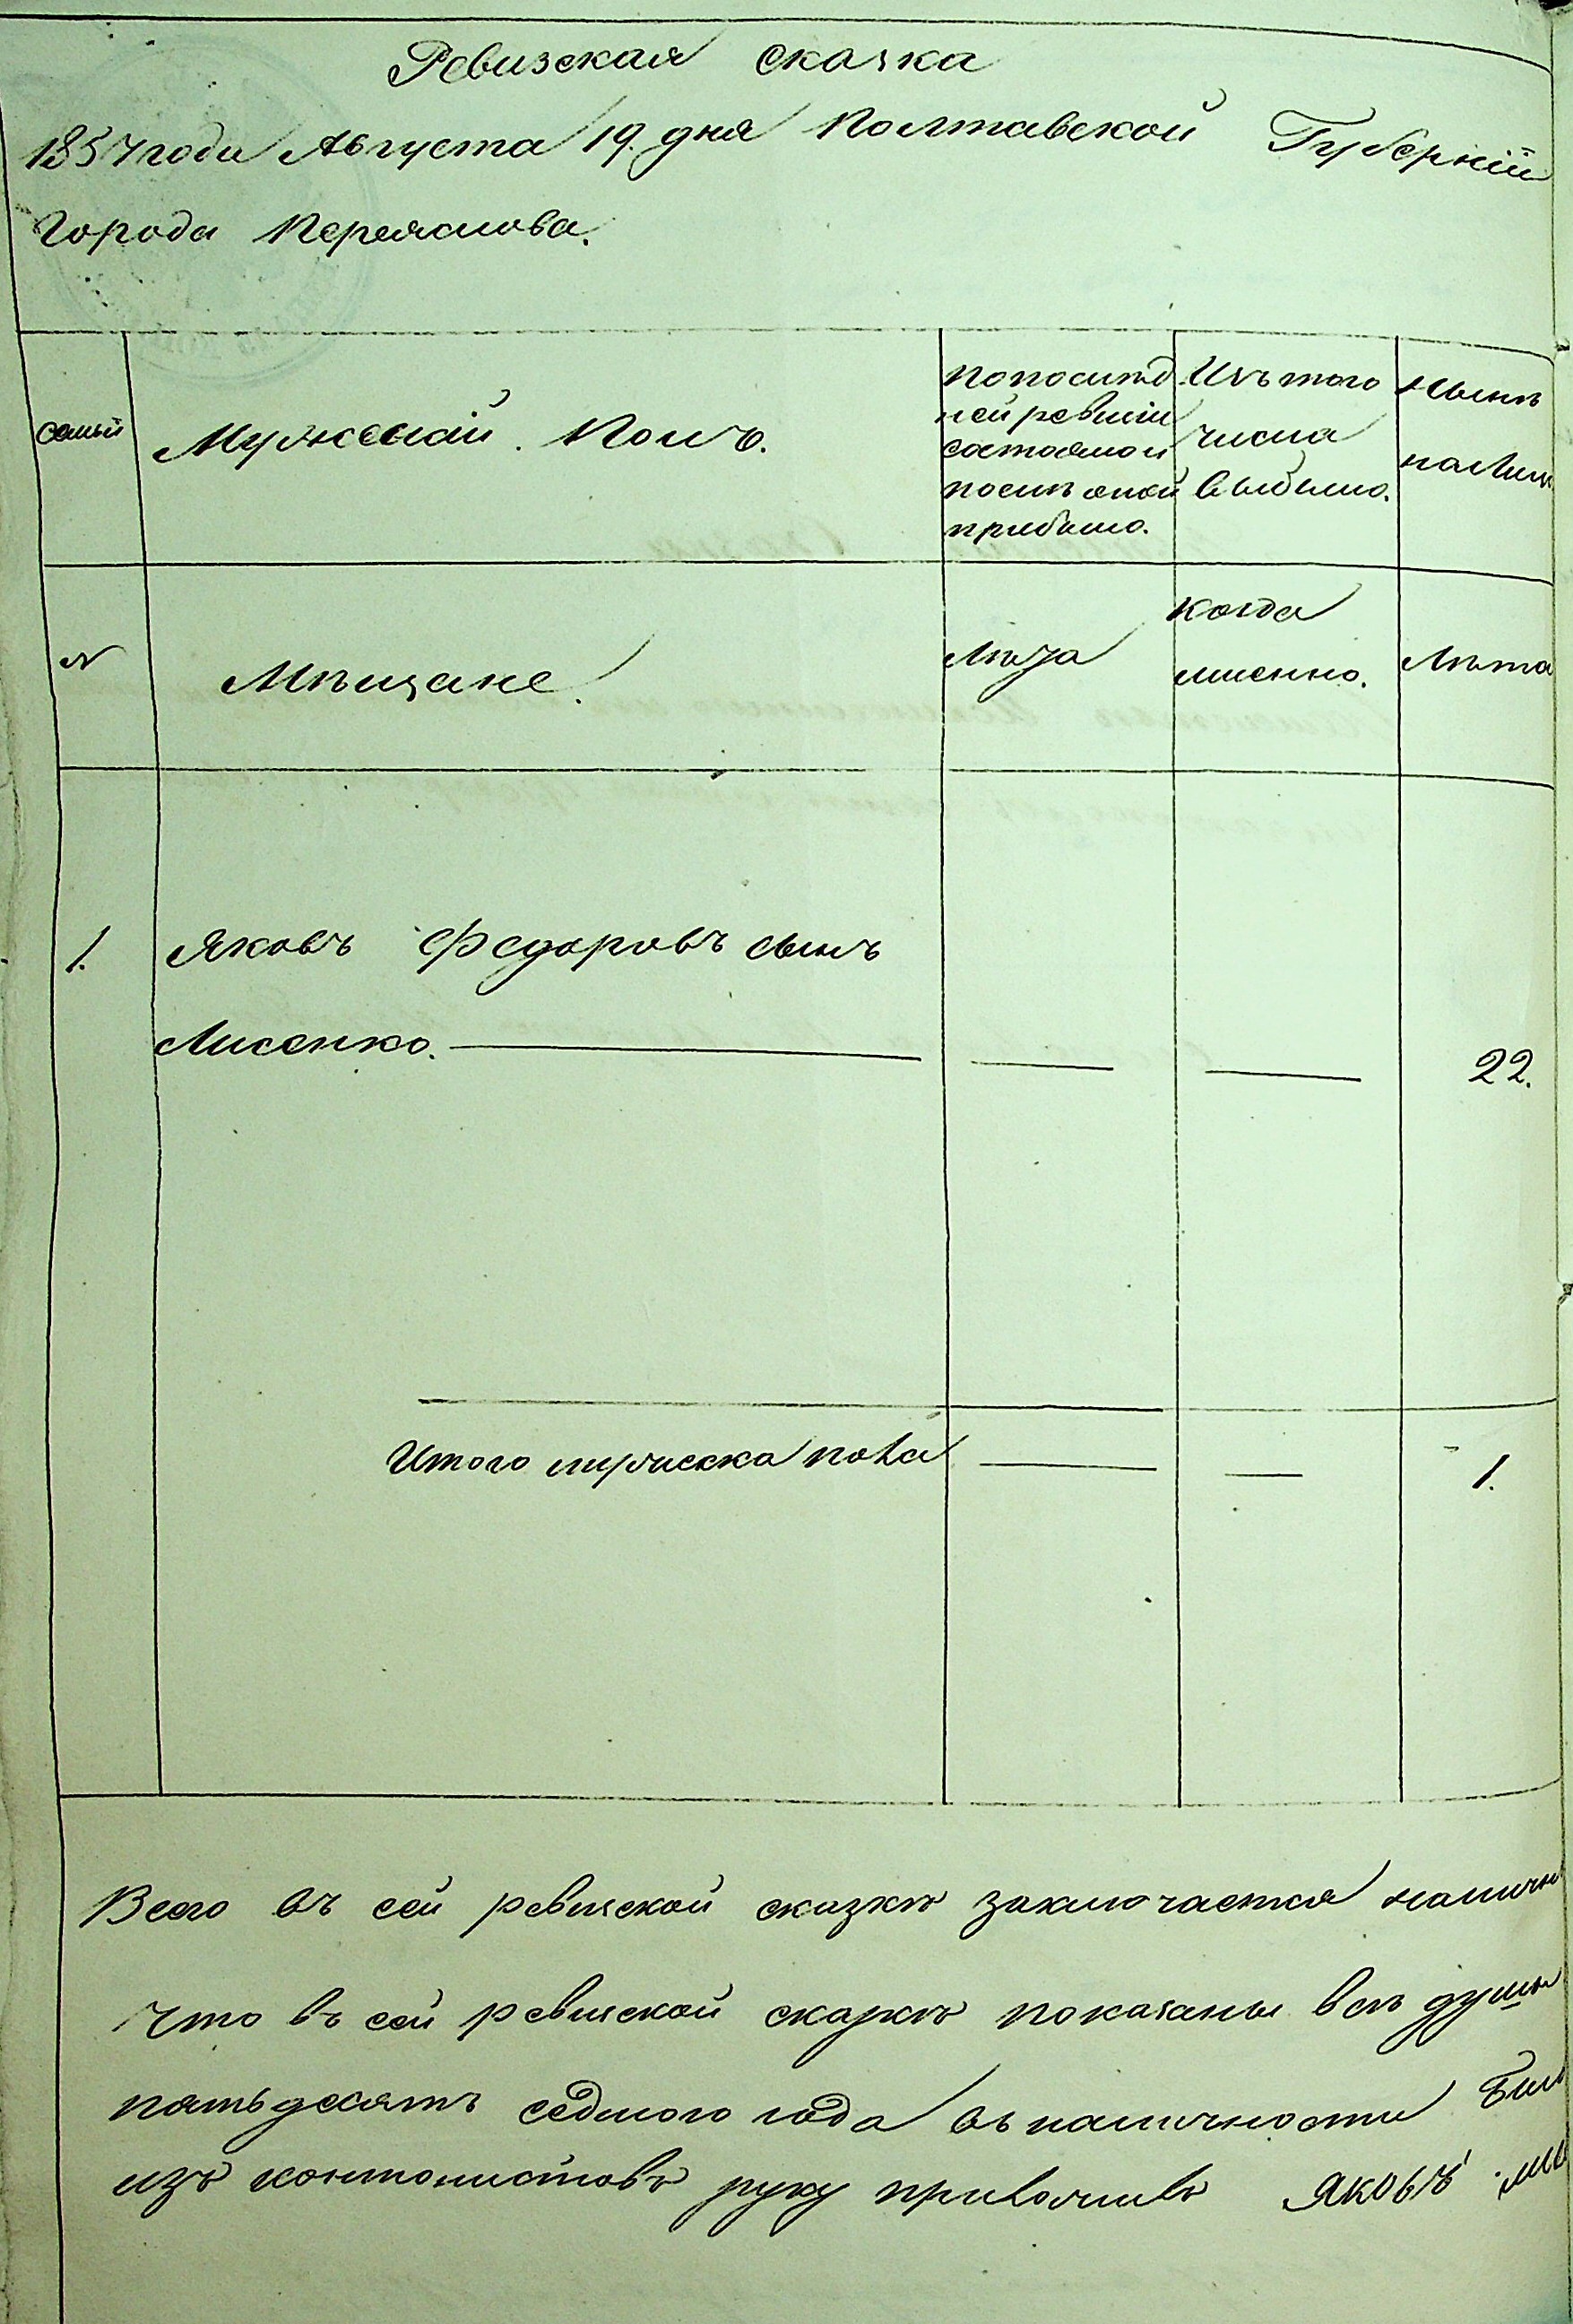 Ревизская сказка
1857 года Августа 19. дня Полтавской Губерніи
Города Переяслова.
семьи
Мужескій. Полъ.
По послѣд
ней ревизіи
состояло и
послѣ оной
прибыло.
Изъ того
числа
выбыло.
Нынѣ
на лицо
№
Мѣщане.
Лѣта
Когда
именно.
Лѣта
1. Яковъ Федоровъ сынъ
Лисенко. — — — 22.
Итого мужеска пола — — 1.
Всего въ сей ревизской сказкѣ заключается наличн
Что въ сей ревизской сказкѣ показаны всѣ души
пятьдесятъ седмого года въ наличности
изъ кантонистовъ руку приложилъ Яковъ Ли